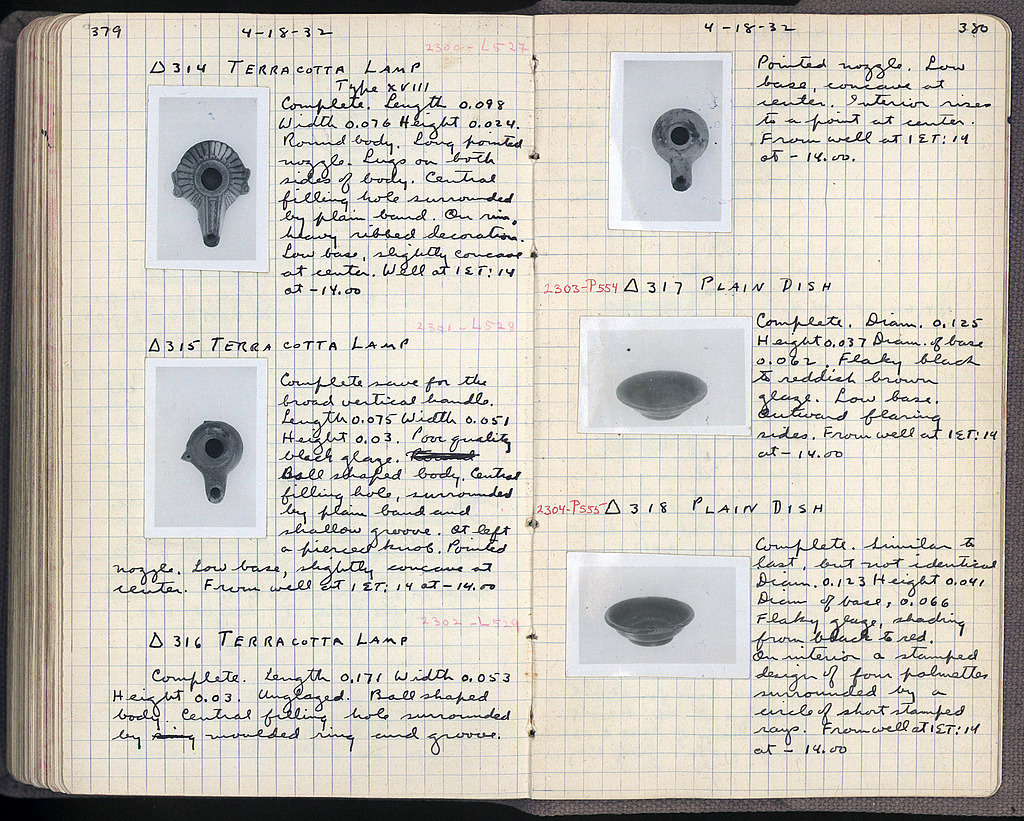 379
4-18-32
2300-L527
Δ 314 TERRACOTTA LAMP
Type XVIII
Complete. Length 0.098
Width 0.076 Height 0.024.
Round body. Long pointed
nozzle. Lugs on both
sides of body. Central
filling hole surrounded
by plain band. On rim,
heavy ribbed decoration.
Low base, slightly concave
at center. Well at 1 ΣT: 14
at -14.00
2301-L528
Δ 315 TERRACOTTA LAMP
Complete save for the
broad vertical handle.
Length 0.075 Width 0.051
Height 0.03. Poor quality
black glaze.
Ball shaped body. Central
filling hole, surrounded
by plain band and
shallow groove. At left
a pierced knob. Pointed
nozzle. Low base, slightly concave at
center. From well at 1 ΣT: 14 at -14.00
2302-L529
Δ 316 TERRACOTTA LAMP
Complete. Length 0.171 Width 0.053
Height 0.03. Unglazed. Ball shaped
body. Central filling hole surrounded
by moulded ring and groove.
4-18-32
380
Pointed nozzle. Low
base, concave at
center. Interior rises
to a point at center.
From well at 1 ΣT: 14
at -14.00.
2303-P554 Δ 317 PLAIN DISH
Complete. Diam. 0.125
Height 0.037 Diam. of base
0.062. Flaky black
to reddish brown
glaze. Low base.
Outward flaring
sides. From well at 1 ΣT: 14
at -14.00
2304-P555 Δ 318 PLAIN DISH
Complete. Similar to
last, but not identical
Diam. 0.123 Height 0.041
Diam of base, 0.066
Flaky glaze, shading
from black to red.
On interior a stamped
design of four palmettes
surrounded by a
circle of short stamped
rays. From well at 1 ΣT: 14
at -14.00